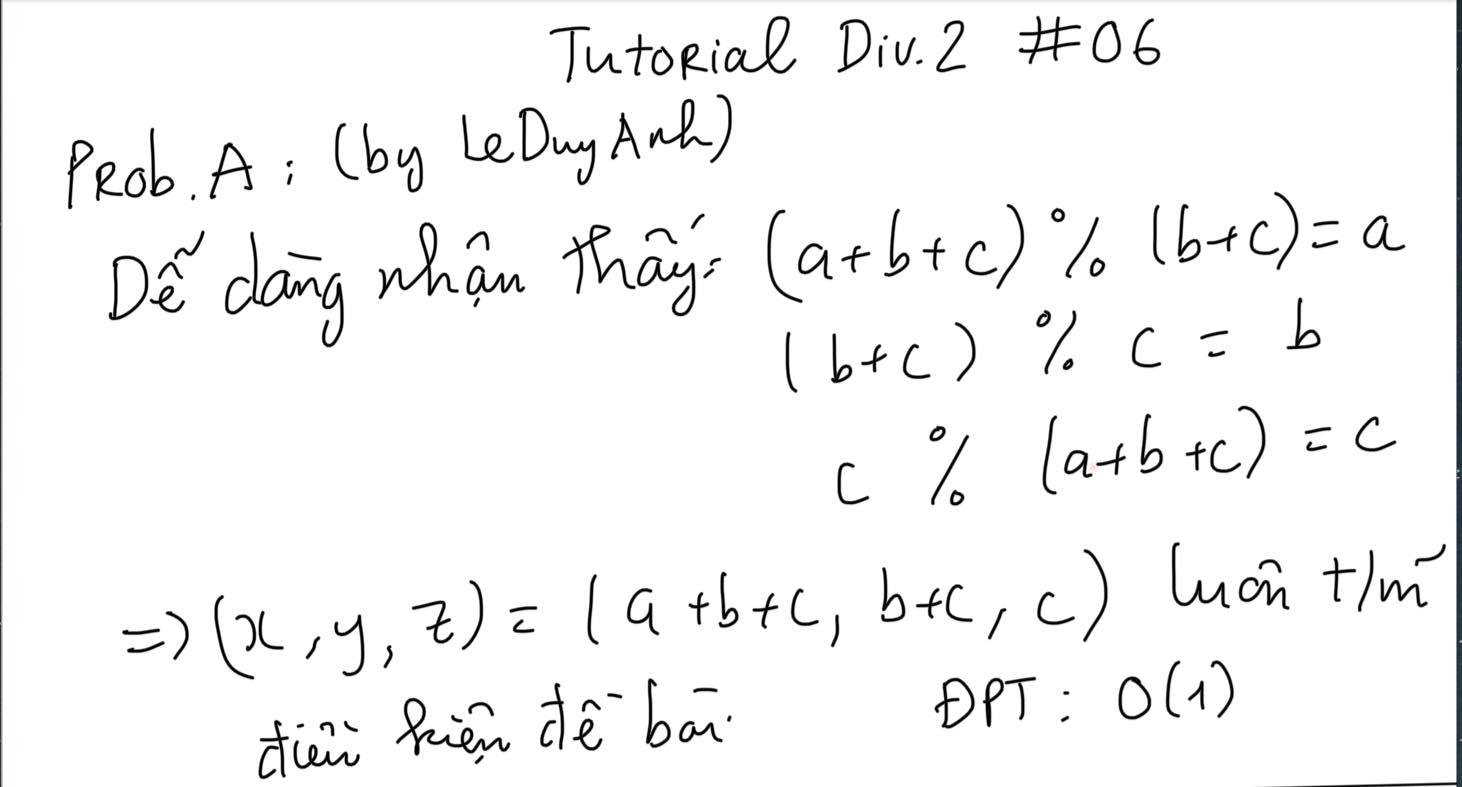 Tutorial Div.2 #06
Prob.A: (by LeDuyAnh)
Dễ dàng nhận thấy: (a+b+c) % (b+c) = a
(b+c) % c = b
c % (a+b+c) = c
=> (x, y, z) = (a+b+c, b+c, c) luôn t/m
điều kiện đề bài.
ĐPT: O(1)